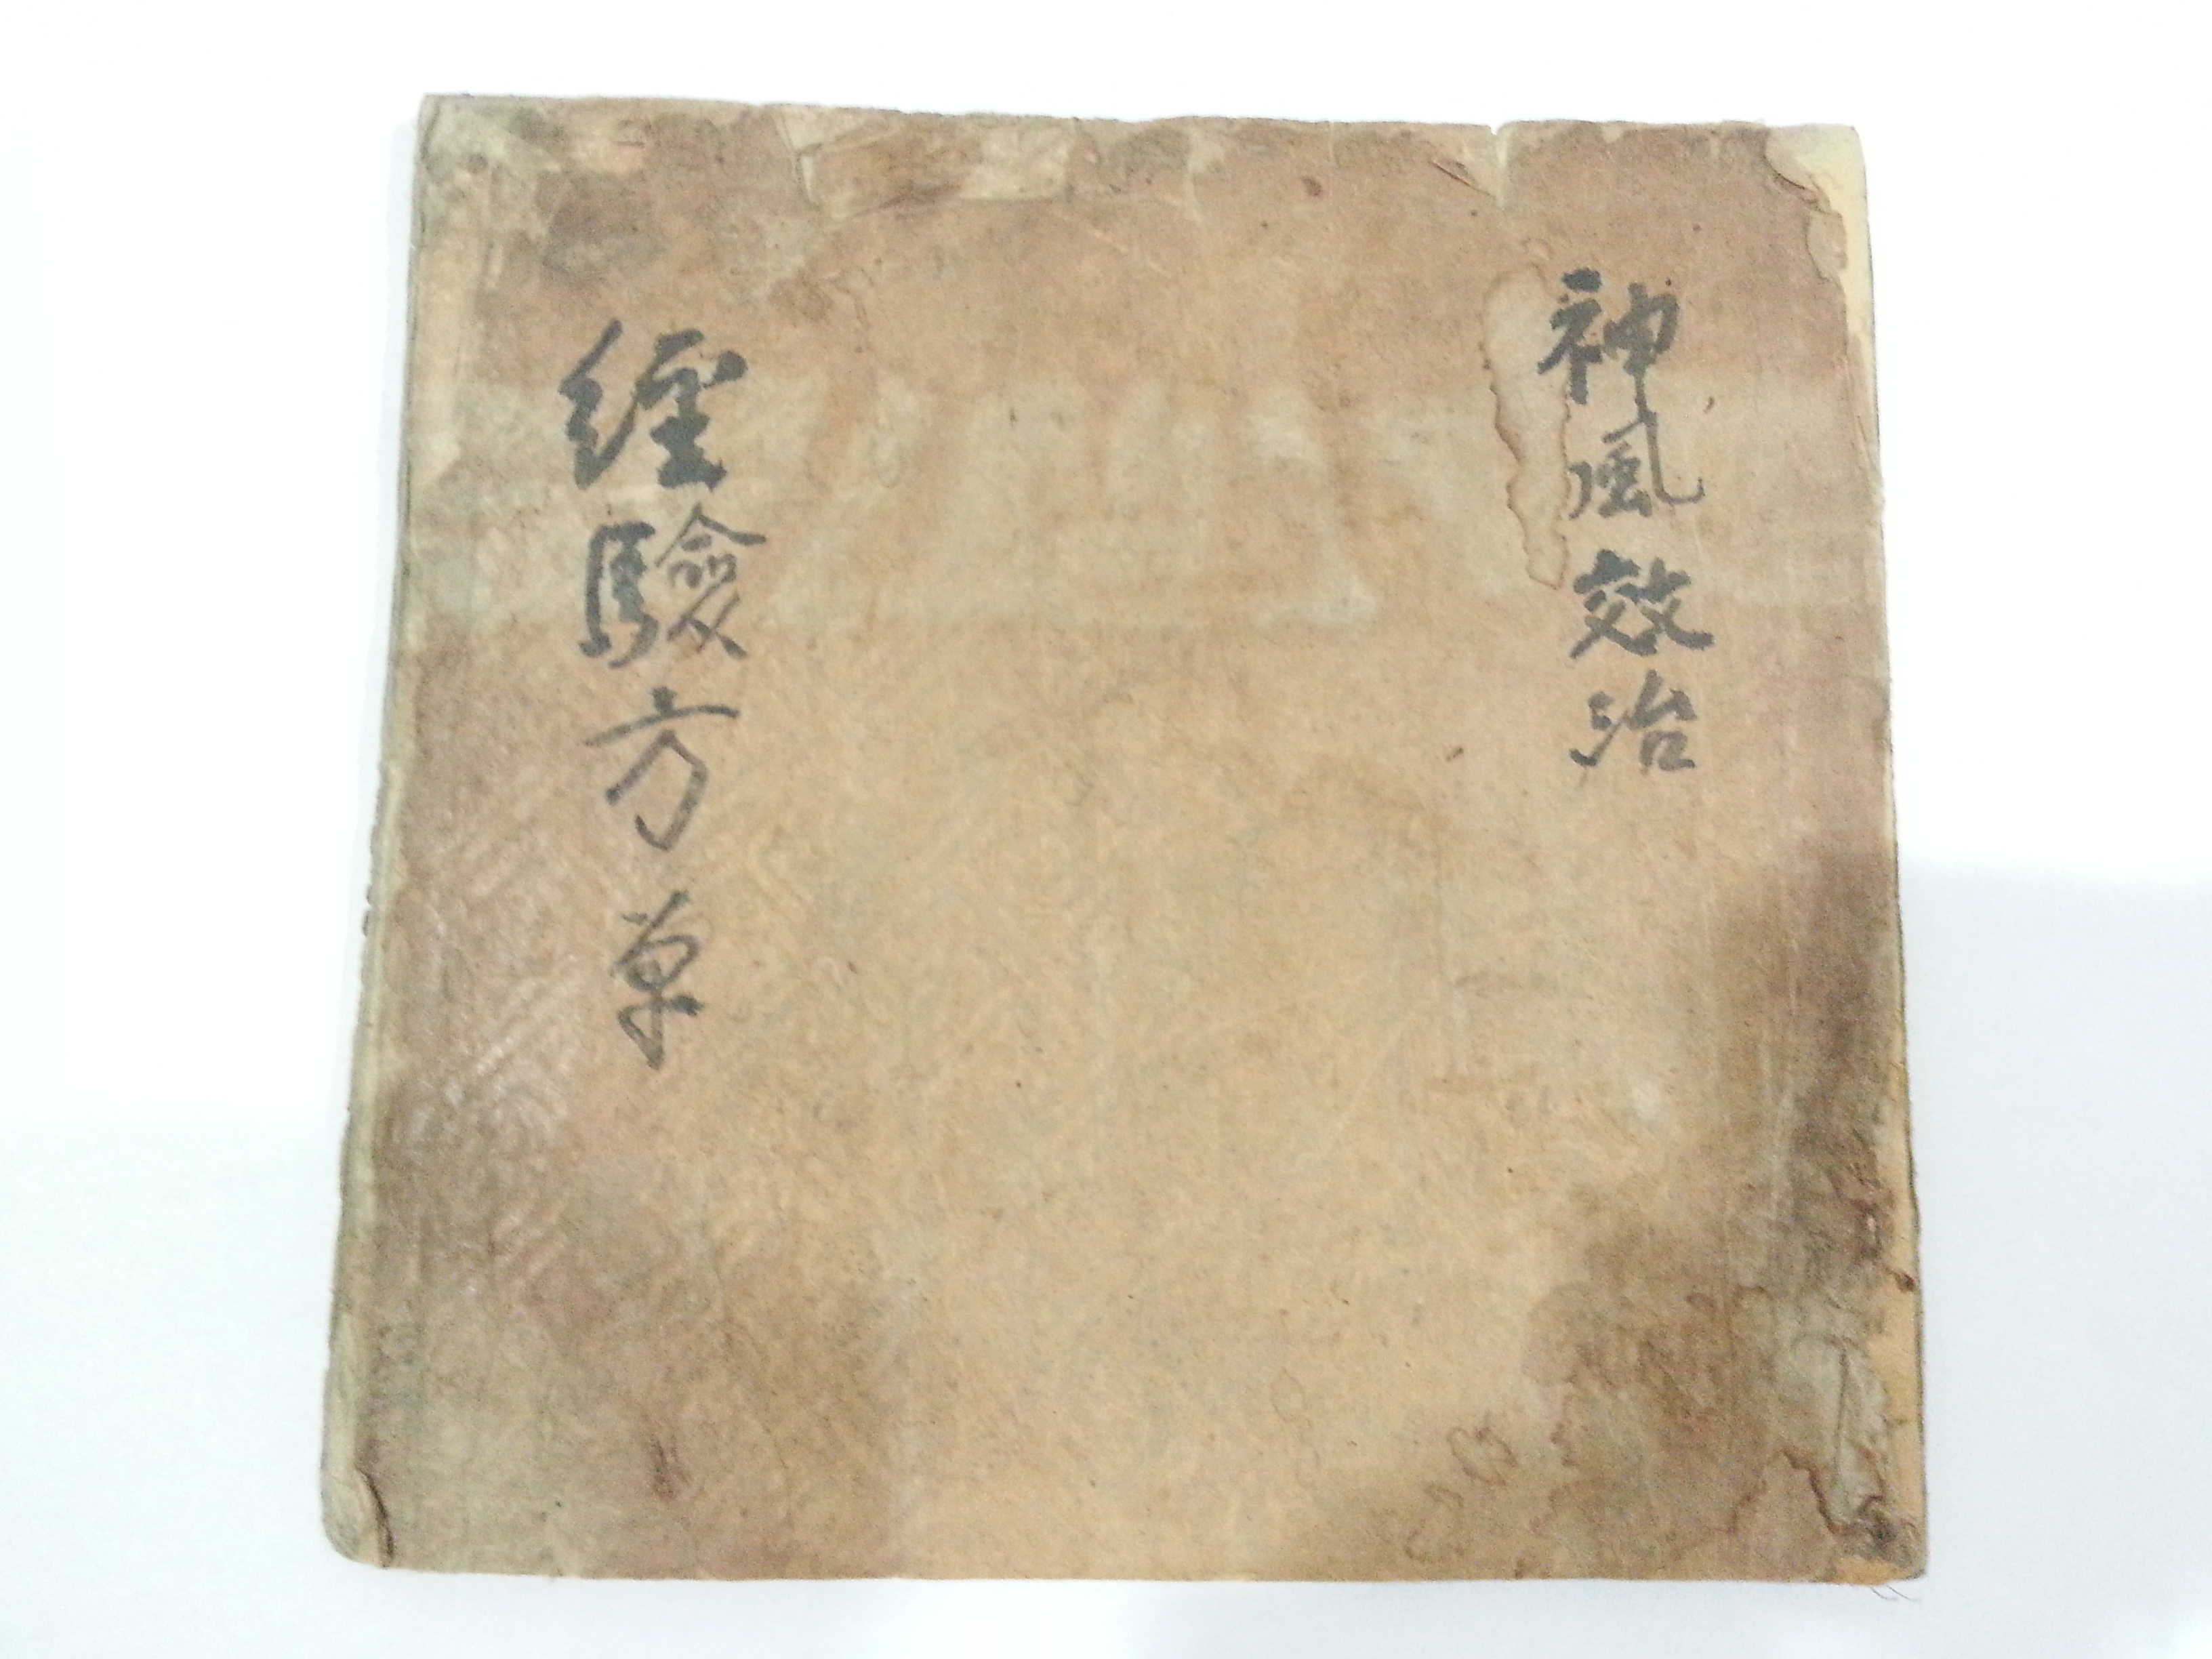 神風效治
經驗方單